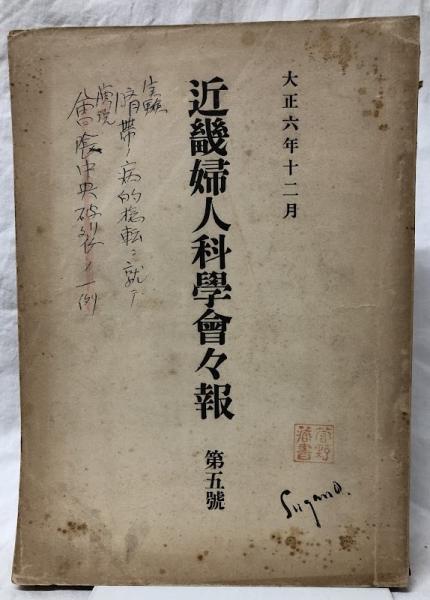 大正六年十二月
近畿婦人科學會々報
第五號
菅野
藏書
Sugano.
臍帶ノ病的捻転ニ就テ
會陰中央破裂ノ一例